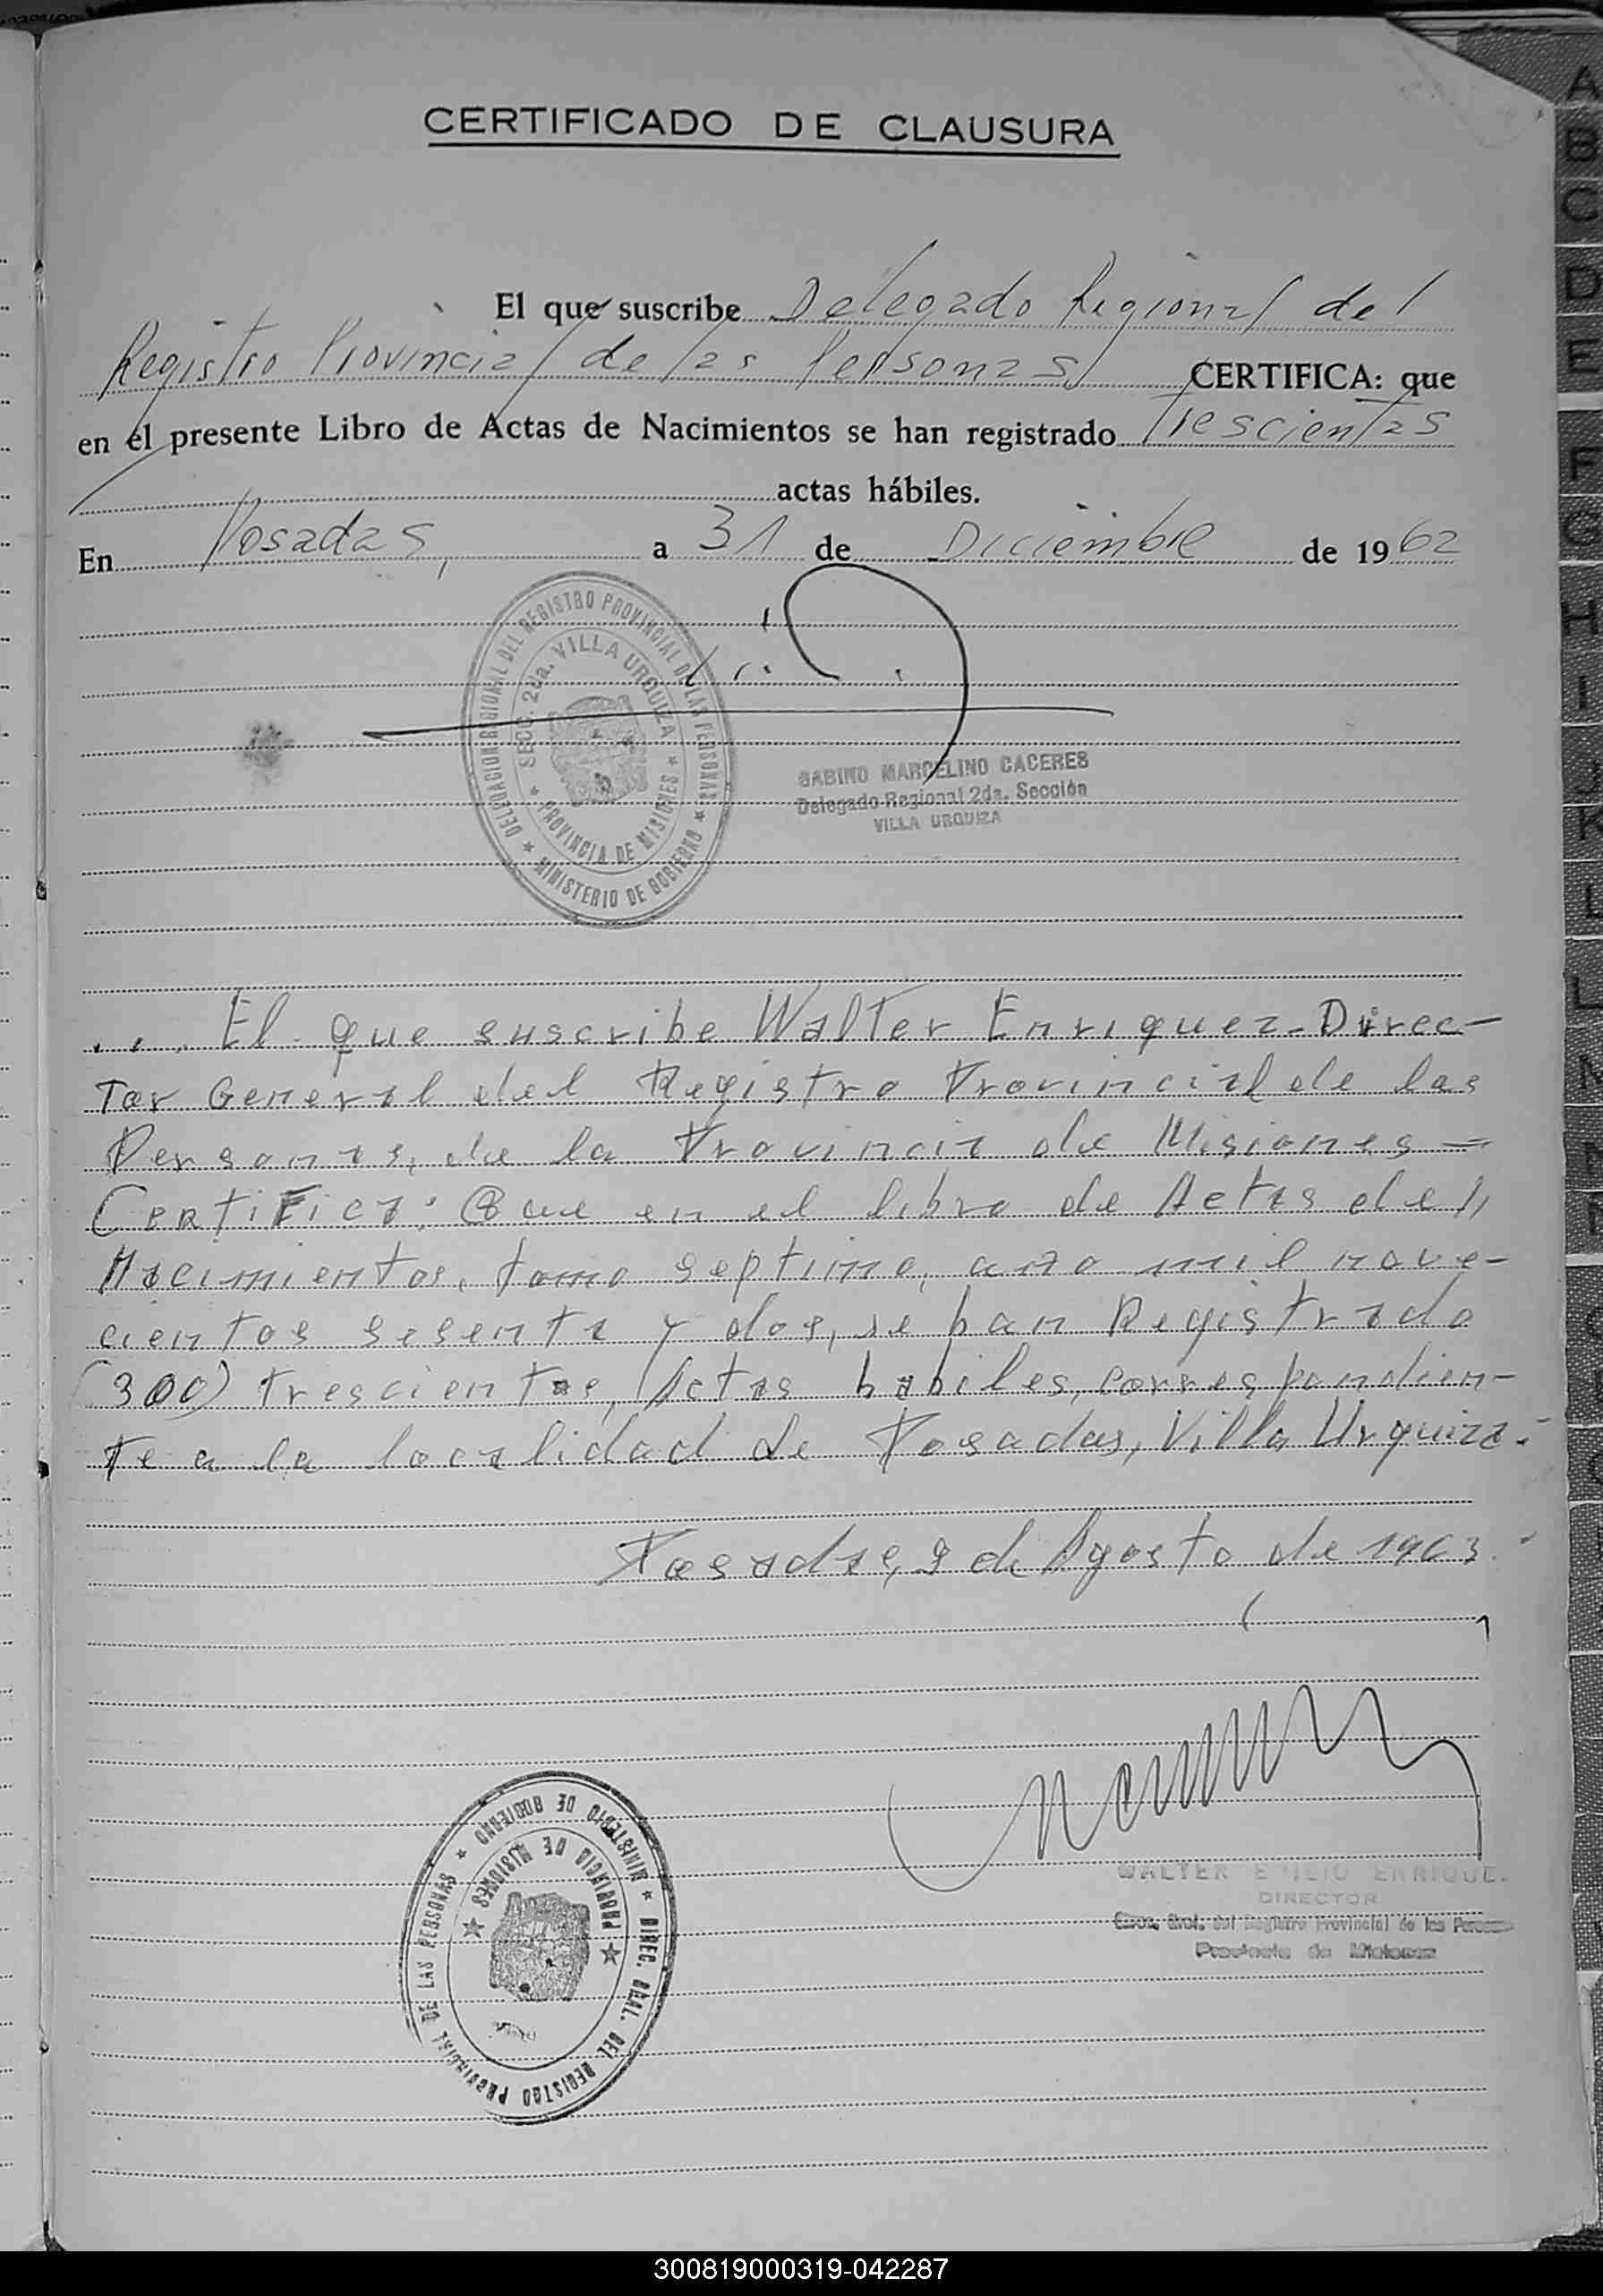 CERTIFICADO DE CLAUSURA
El que suscribe Delegado Regional del
Registro Provincial de las Personas, CERTIFICA: que
en el presente Libro de Actas de Nacimientos se han registrado Trescientas
actas hábiles.
En Posadas, a 31 de Diciembre de 1962
DELEGACION REGIONAL DEL REGISTRO PROVINCIAL DE LAS PERSONAS
SECC. 2da. VILLA URQUIZA
PROVINCIA DE MISIONES
MINISTERIO DE GOBIERNO
SABINO MARCELINO CACERES
Delegado Regional 2da. Sección
VILLA URQUIZA
El que suscribe Walter Enriquez - Direc-
tor General del Registro Provincial de las
Personas, de la Provincia de Misiones =
Certifica: Que en el libro de Actas de
Nacimientos, tomo septimo, año mil nove-
cientos sesenta y dos, se han Registrado
(300) trescientas, Actas habiles, correspondien-
te a la localidad de Posadas, Villa Urquiza.-
Posadas, 9 de Agosto de 1963.-
WALTER EMILIO ENRIQUE.
DIRECTOR
Gral. del Registro Provincial de las Personas
Provincia de Misiones
MINISTERIO DE GOBIERNO
PROVINCIA DE MISIONES
DIREC. GRAL. DEL REGISTRO PROVINCIAL DE LAS PERSONAS
A
B
C
D
E
F
G
H
I
J
K
L
300819000319-042287